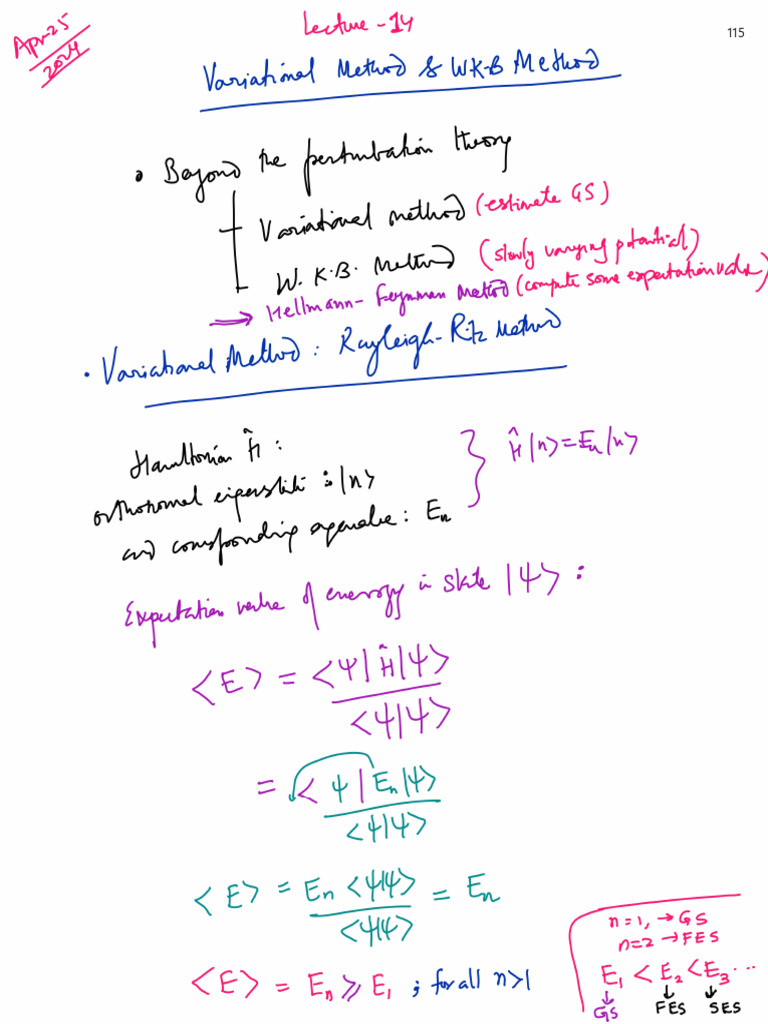 Lecture - 14
115
Apr-25
2024
Variational Method & W.K.B Method
• Beyond the perturbation theory
Variational method (estimate GS)
W. K. B. Method (slowly varying potential)
→ Hellmann - Feynman Method (compute some expectation value)
• Variational Method : Rayleigh-Ritz Method
Hamiltonian Ĥ :
orthonormal eigenstate : |n>
and corresponding eigenvalue : En
} Ĥ|n> = En|n>
Expectation value of energy in state |Ψ> :
<E> = <Ψ|Ĥ|Ψ>
<Ψ|Ψ>
= <Ψ|En|Ψ>
<Ψ|Ψ>
<E> = En <Ψ|Ψ> = En
<Ψ|Ψ>
<E> = En ⩾ E1 ; for all n>1
n=1, → GS
n=2 → FES
E1 < E2 < E3 ...
↓ ↓ ↓
GS FES SES